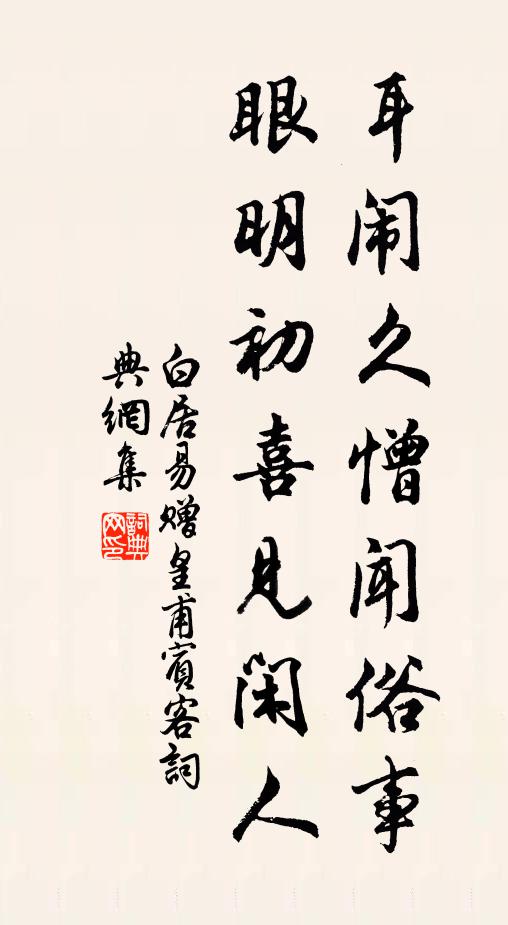 耳闹久憎闻俗事
眼明初喜见闲人
白居易赠皇甫賓客詞
典網集
詞典網印